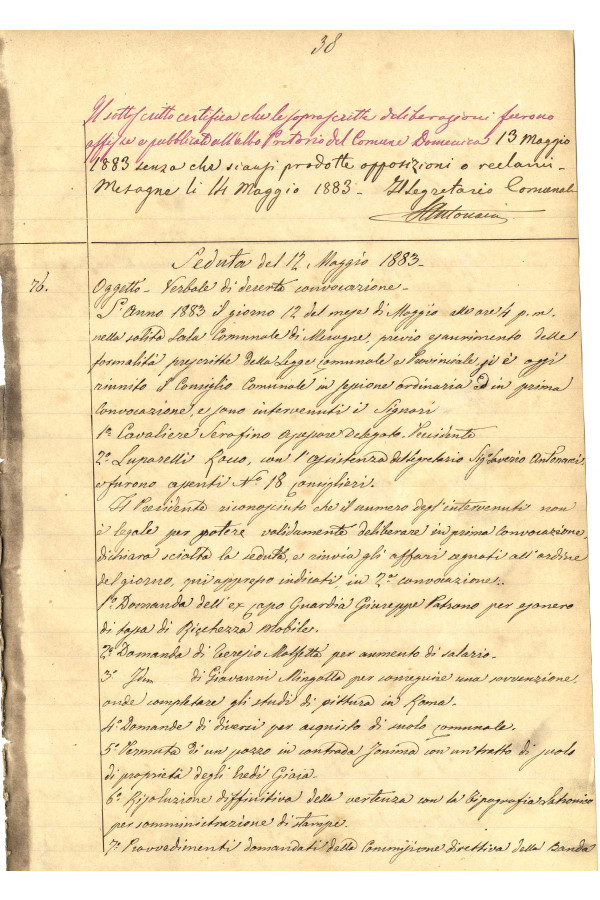 38
Il sottoscritto certifica che le soprascritte deliberazioni furono
affisse e pubblicate all'albo Pretorio del Comune Domenica 13 Maggio
1883 senza che siansi prodotte opposizioni o reclami -
Mesagne li 14 Maggio 1883 - Il Segretario Comunale
SAntonucci
Seduta del 12 Maggio 1883 -
76.
Oggetto - Verbale di deserta convocazione -
L'Anno 1883 il giorno 12 del mese di Maggio alle ore 4 p.m.
nella solita Sala Comunale di Mesagne, previo esaurimento delle
formalità prescritte dalla Legge comunale e Provinciale, si è oggi
riunito il Consiglio Comunale in sessione ordinaria ed in prima
Convocazione, e sono intervenuti i Signori
1º Cavaliere Serafino Assessore Delegato - Presidente
2º Luparelli Rocco, con l'assistenza del Segretario Sigr Saverio Antonucci,
e furono assenti Nº 18 Consiglieri.
Il Presidente riconosciuto che il numero degl'intervenuti non
è legale per potere validamente deliberare in prima Convocazione,
dichiara sciolta la seduta, e rinvia gli affari segnati all'ordine
del giorno, qui appresso indicati in 2ª convocazione:
1º Domanda dell'ex capo Guardia Giuseppe Patrono per esonero
di tassa di Ricchezza Mobile.
2º Domanda di Teresio Molfetta per aumento di salario -
3º Idem di Giovanni Mingolla per conseguire una sovvenzione
onde completare gli studi di pittura in Roma -
4º Domande di diversi per acquisto di suolo comunale.
5º Permuta di un pozzo in contrada con un tratto di suolo
di proprietà degli Eredi Gioia -
6º Risoluzione diffinitiva della vertenza con la Tipografia
per somministrazione di stampe.
7º Provvedimenti domandati dalla Commissione direttiva della Banda